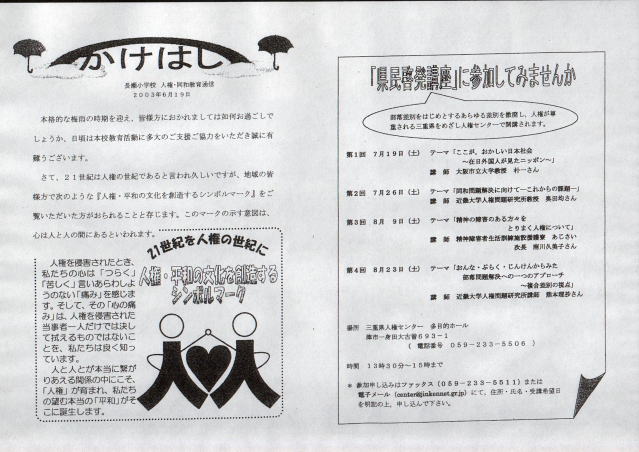 かけはし
長郷小学校 人権・同和教育通信
2003年6月19日
本格的な梅雨の時期を迎え、皆様方におかれましては如何お過ごしで
しょうか、日頃は本校教育活動に多大のご支援ご協力をいただき誠に有
難うございます。
さて、21世紀は人権の世紀であると言われ久しいですが、地域の皆
様方で次のような『人権・平和の文化を創造するシンボルマーク』をご
覧いただいた方がおられることと存じます。このマークの示す意図は、
心は人と人の間にあるといわれます。
人権を侵害されたとき、
私たちの心は「つらく」
「苦しく」言いあらわしよ
うのない「痛み」を感じま
す。そして、その「心の痛
み」は、人権を侵害された
当事者一人だけでは決し
て拭えるものではないこ
とを、私たちは良く知っ
ています。
人と人とが本当に繋が
りあえる関係の中にこそ、
「人権」が育まれ、私たち
の望む本当の「平和」がそ
こに誕生します。
21世紀を人権の世紀に
人権・平和の文化を創造する
シンボルマーク
「県民啓発講座」に参加してみませんか
部落差別をはじめとするあらゆる差別を撤廃し、人権が尊
重される三重県をめざし人権センターで開講されます。
第1回 7月19日(土) テーマ「ここが、おかしい日本社会
～在日外国人が見たニッポン～」
講 師 大阪市立大学教授 朴一さん
第2回 7月26日(土) テーマ「同和問題解決に向けて―これからの課題―」
講 師 近畿大学人権問題研究所教授 奥田均さん
第3回 8月 9日(土) テーマ「精神の障害のある方々を
とりまく人権について」
講 師 精神障害者生活訓練施設援護寮 あじさい
次長 南川久美子さん
第4回 8月23日(土) テーマ「おんな・ぶらく・じんけんからみた
部落問題解決への一つのアプローチ
～複合差別の視点」
講 師 近畿大学人権問題研究所講師 熊本理抄さん
場所 三重県人権センター 多目的ホール
津市一身田大古曽693－1
(電話番号 059－233－5506)
時間 13時30分～15時まで
* 参加申し込みはファックス(059－233－5511)または
電子メール(center@jinkennet.gr.jp)にて、住所・氏名・受講希望日
を明記の上、申し込んで下さい。